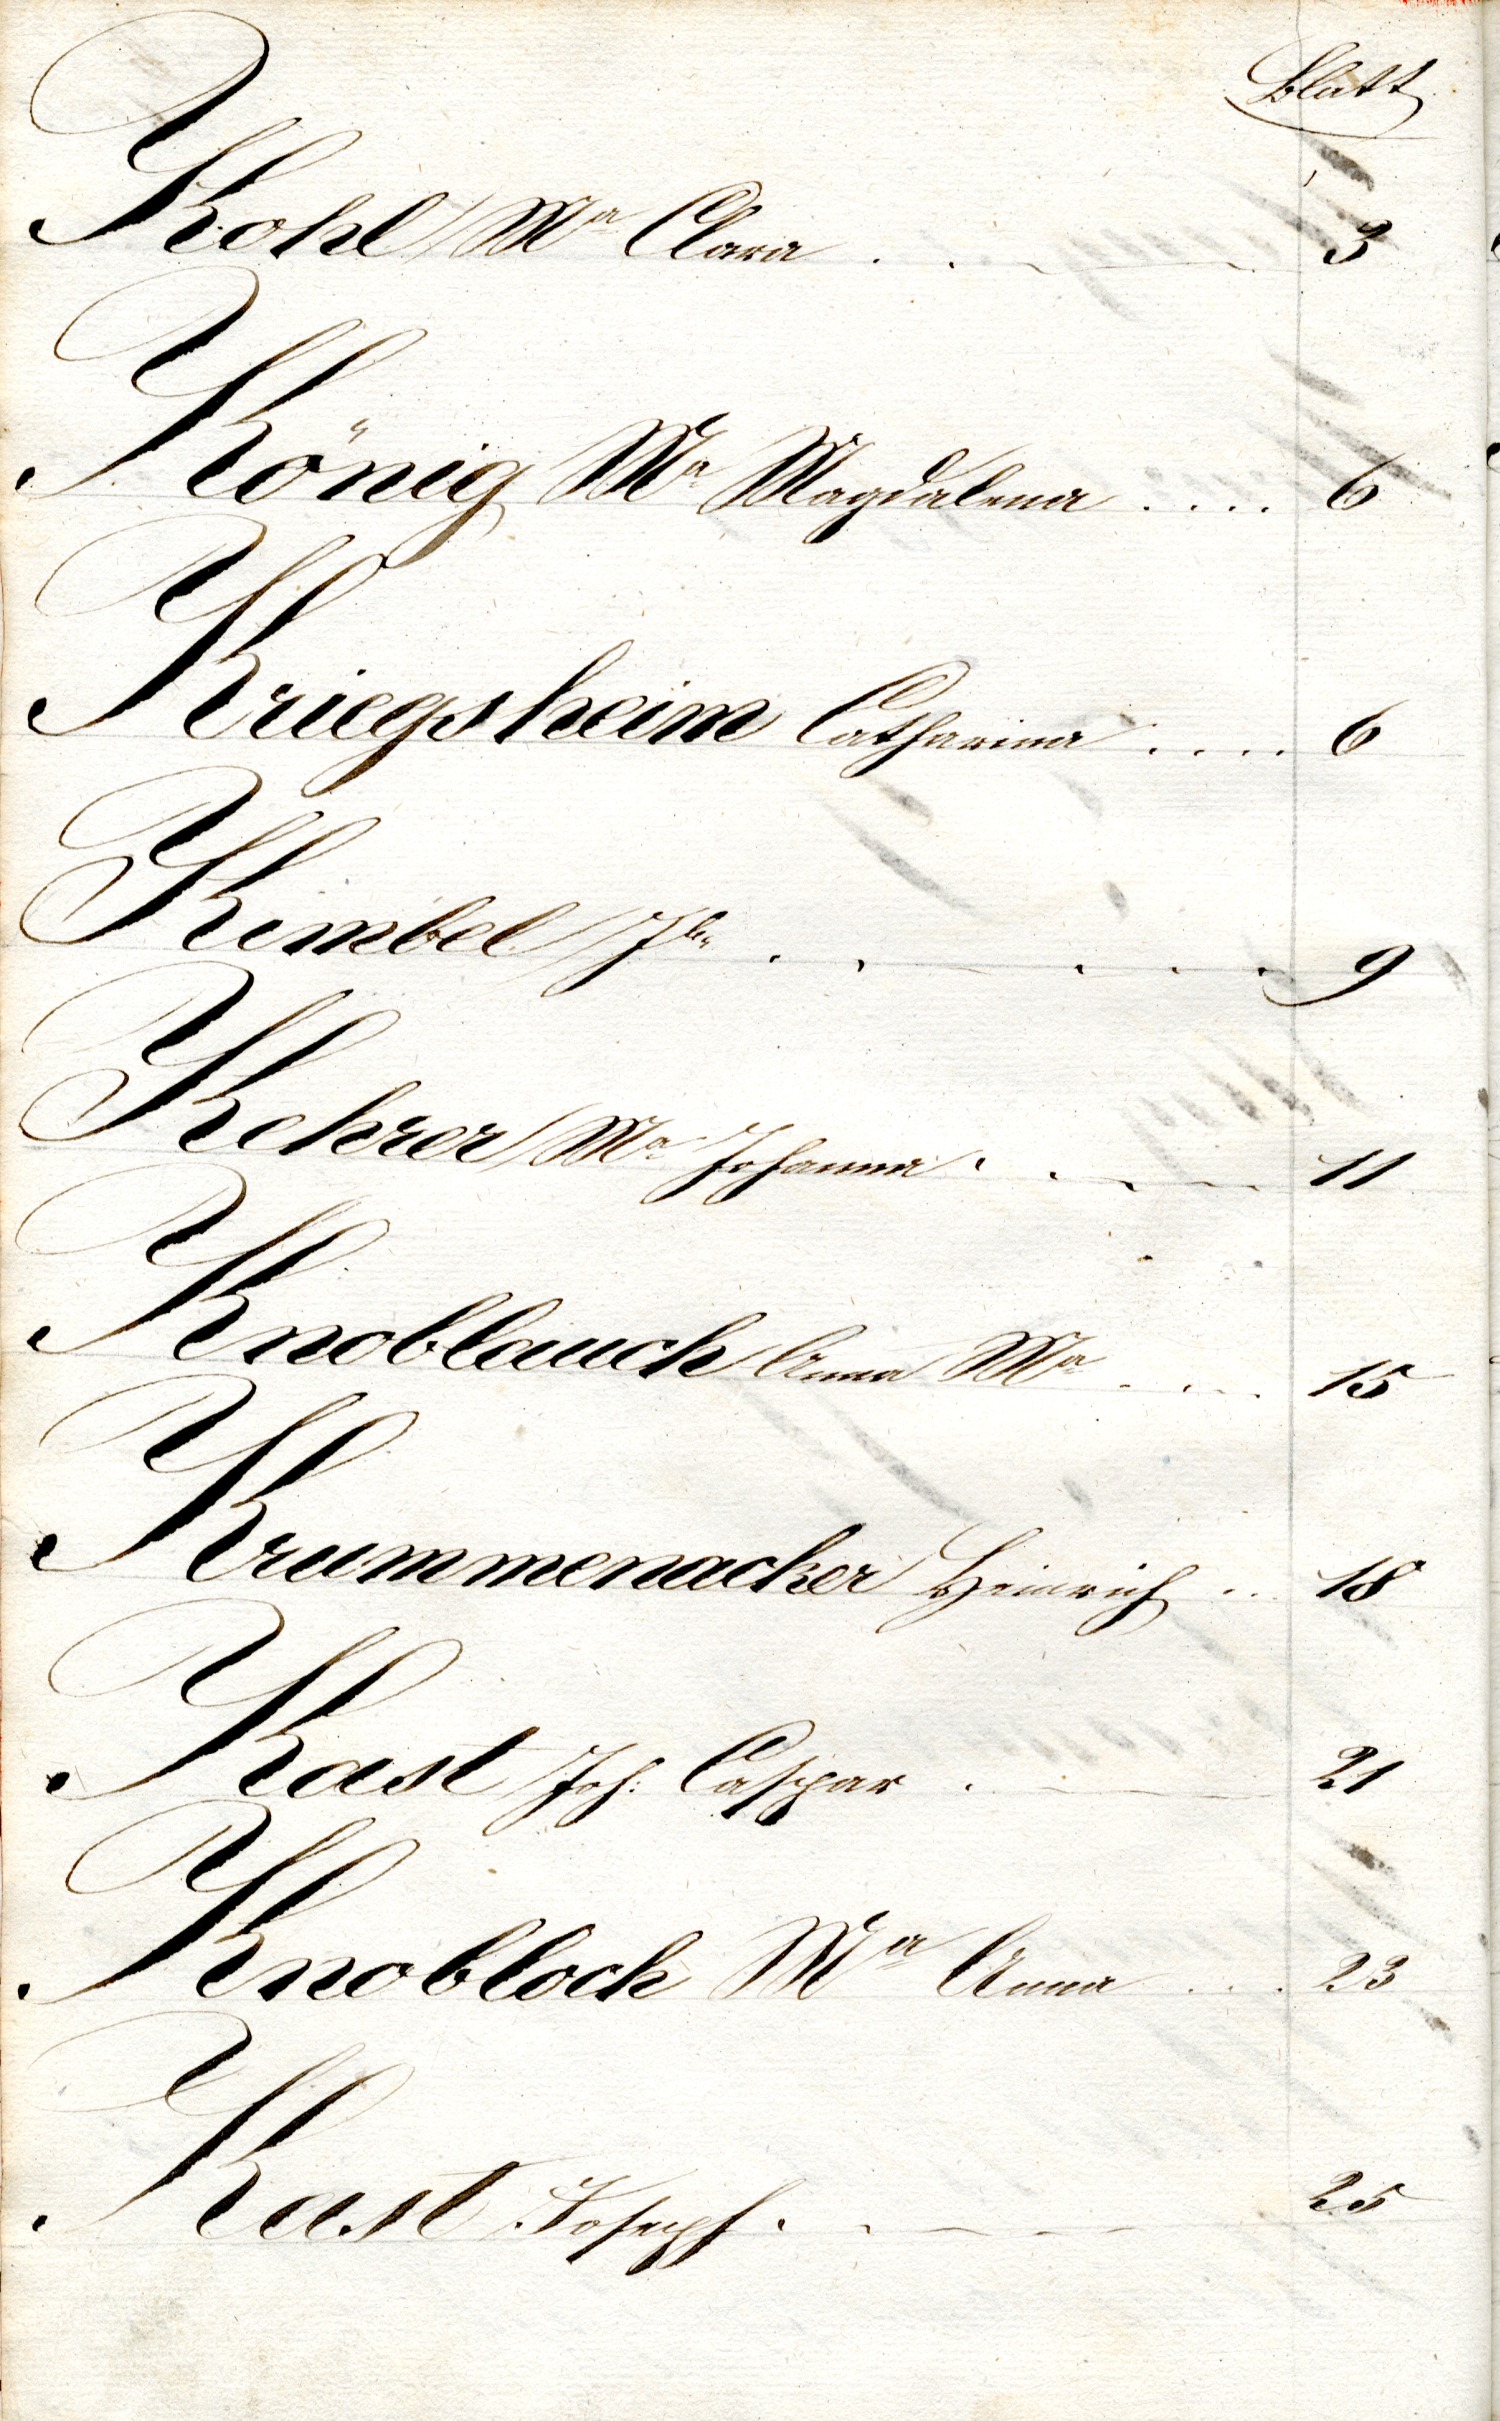 Blatt
Kohl Ma Clara . . — — 3
König Ma Magdalena .... 6
Kriegsheim Catharina .... 6
Kimbel . . — . . . 9
Kehrer Ma Johanna . . — — 11
Knoblauch Anna Ma . . . . 15
Krummenacker Heinrich .. 18
Kast Joh: Caspar . — — 21
Knobloch Ma Anna ... 23
Kast Joseph . . — — — 25